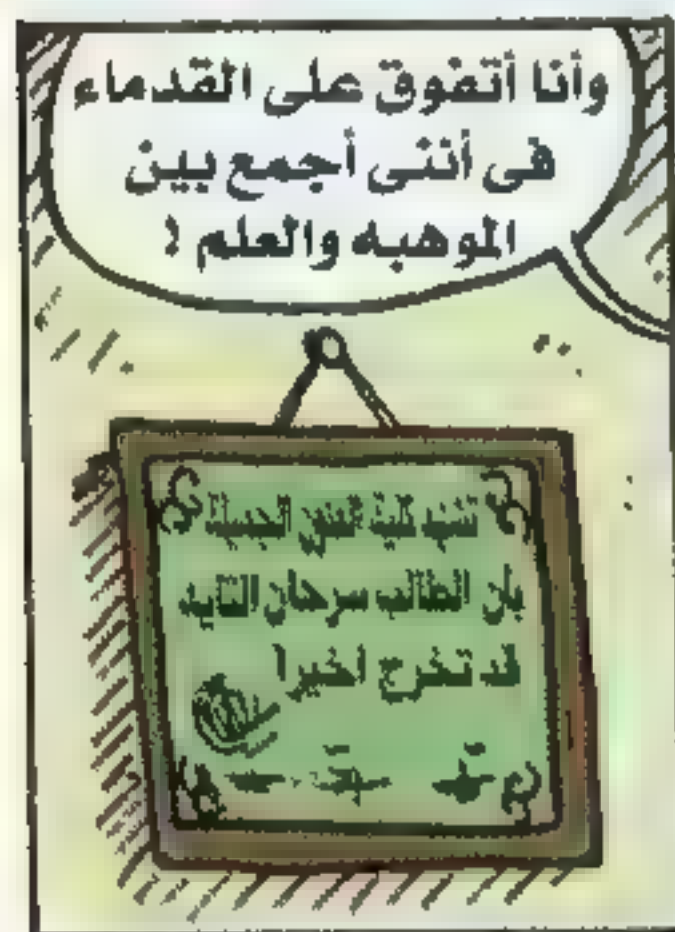 وأنا أتفوق على القدماء
فى أننى أجمع بين
الموهبه والعلم !
تشهد كلية الفنون الجميلة
بأن الطالب سرحان التايه
قد تخرج اخيرا